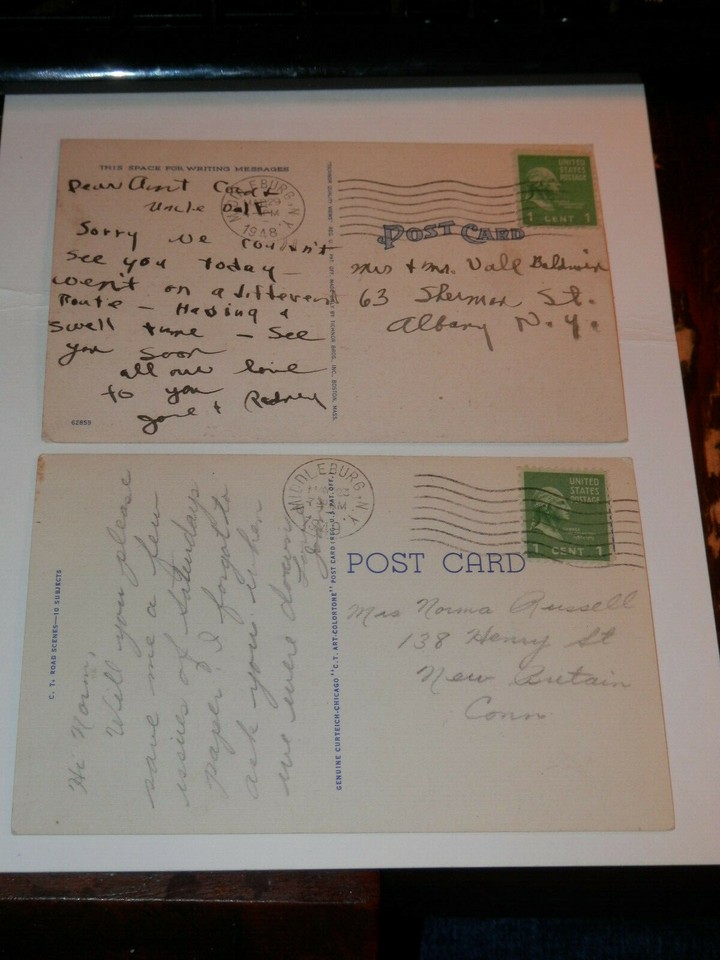 THIS SPACE FOR WRITING MESSAGES
Dear Aunt
Uncle
Sorry we couldn't
see you today –
went on a different
route – Having a
swell time – See
you soon
all our love
to you
& Rodney
62859
MIDDLEBURG, N.Y.
1948
UNITED
STATES
POSTAGE
1 CENT 1
POST CARD
Mrs & Mr. Vall Baldwin
63 Sherman St.
Albany N.Y.
C. T. ROAD SCENES—10 SUBJECTS
Hi Norm,
Will you please
save me a few
issues of Saturdays
paper? I forgot to
ask you when
we were down
MIDDLEBURG, N.Y.
GENUINE CURTEICH-CHICAGO "C.T. ART-COLORTONE" POST CARD (REG. U.S. PAT. OFF.)
UNITED
STATES
POSTAGE
1 CENT 1
POST CARD
Mrs Norma Russell
138 Henry St
New Britain
Conn